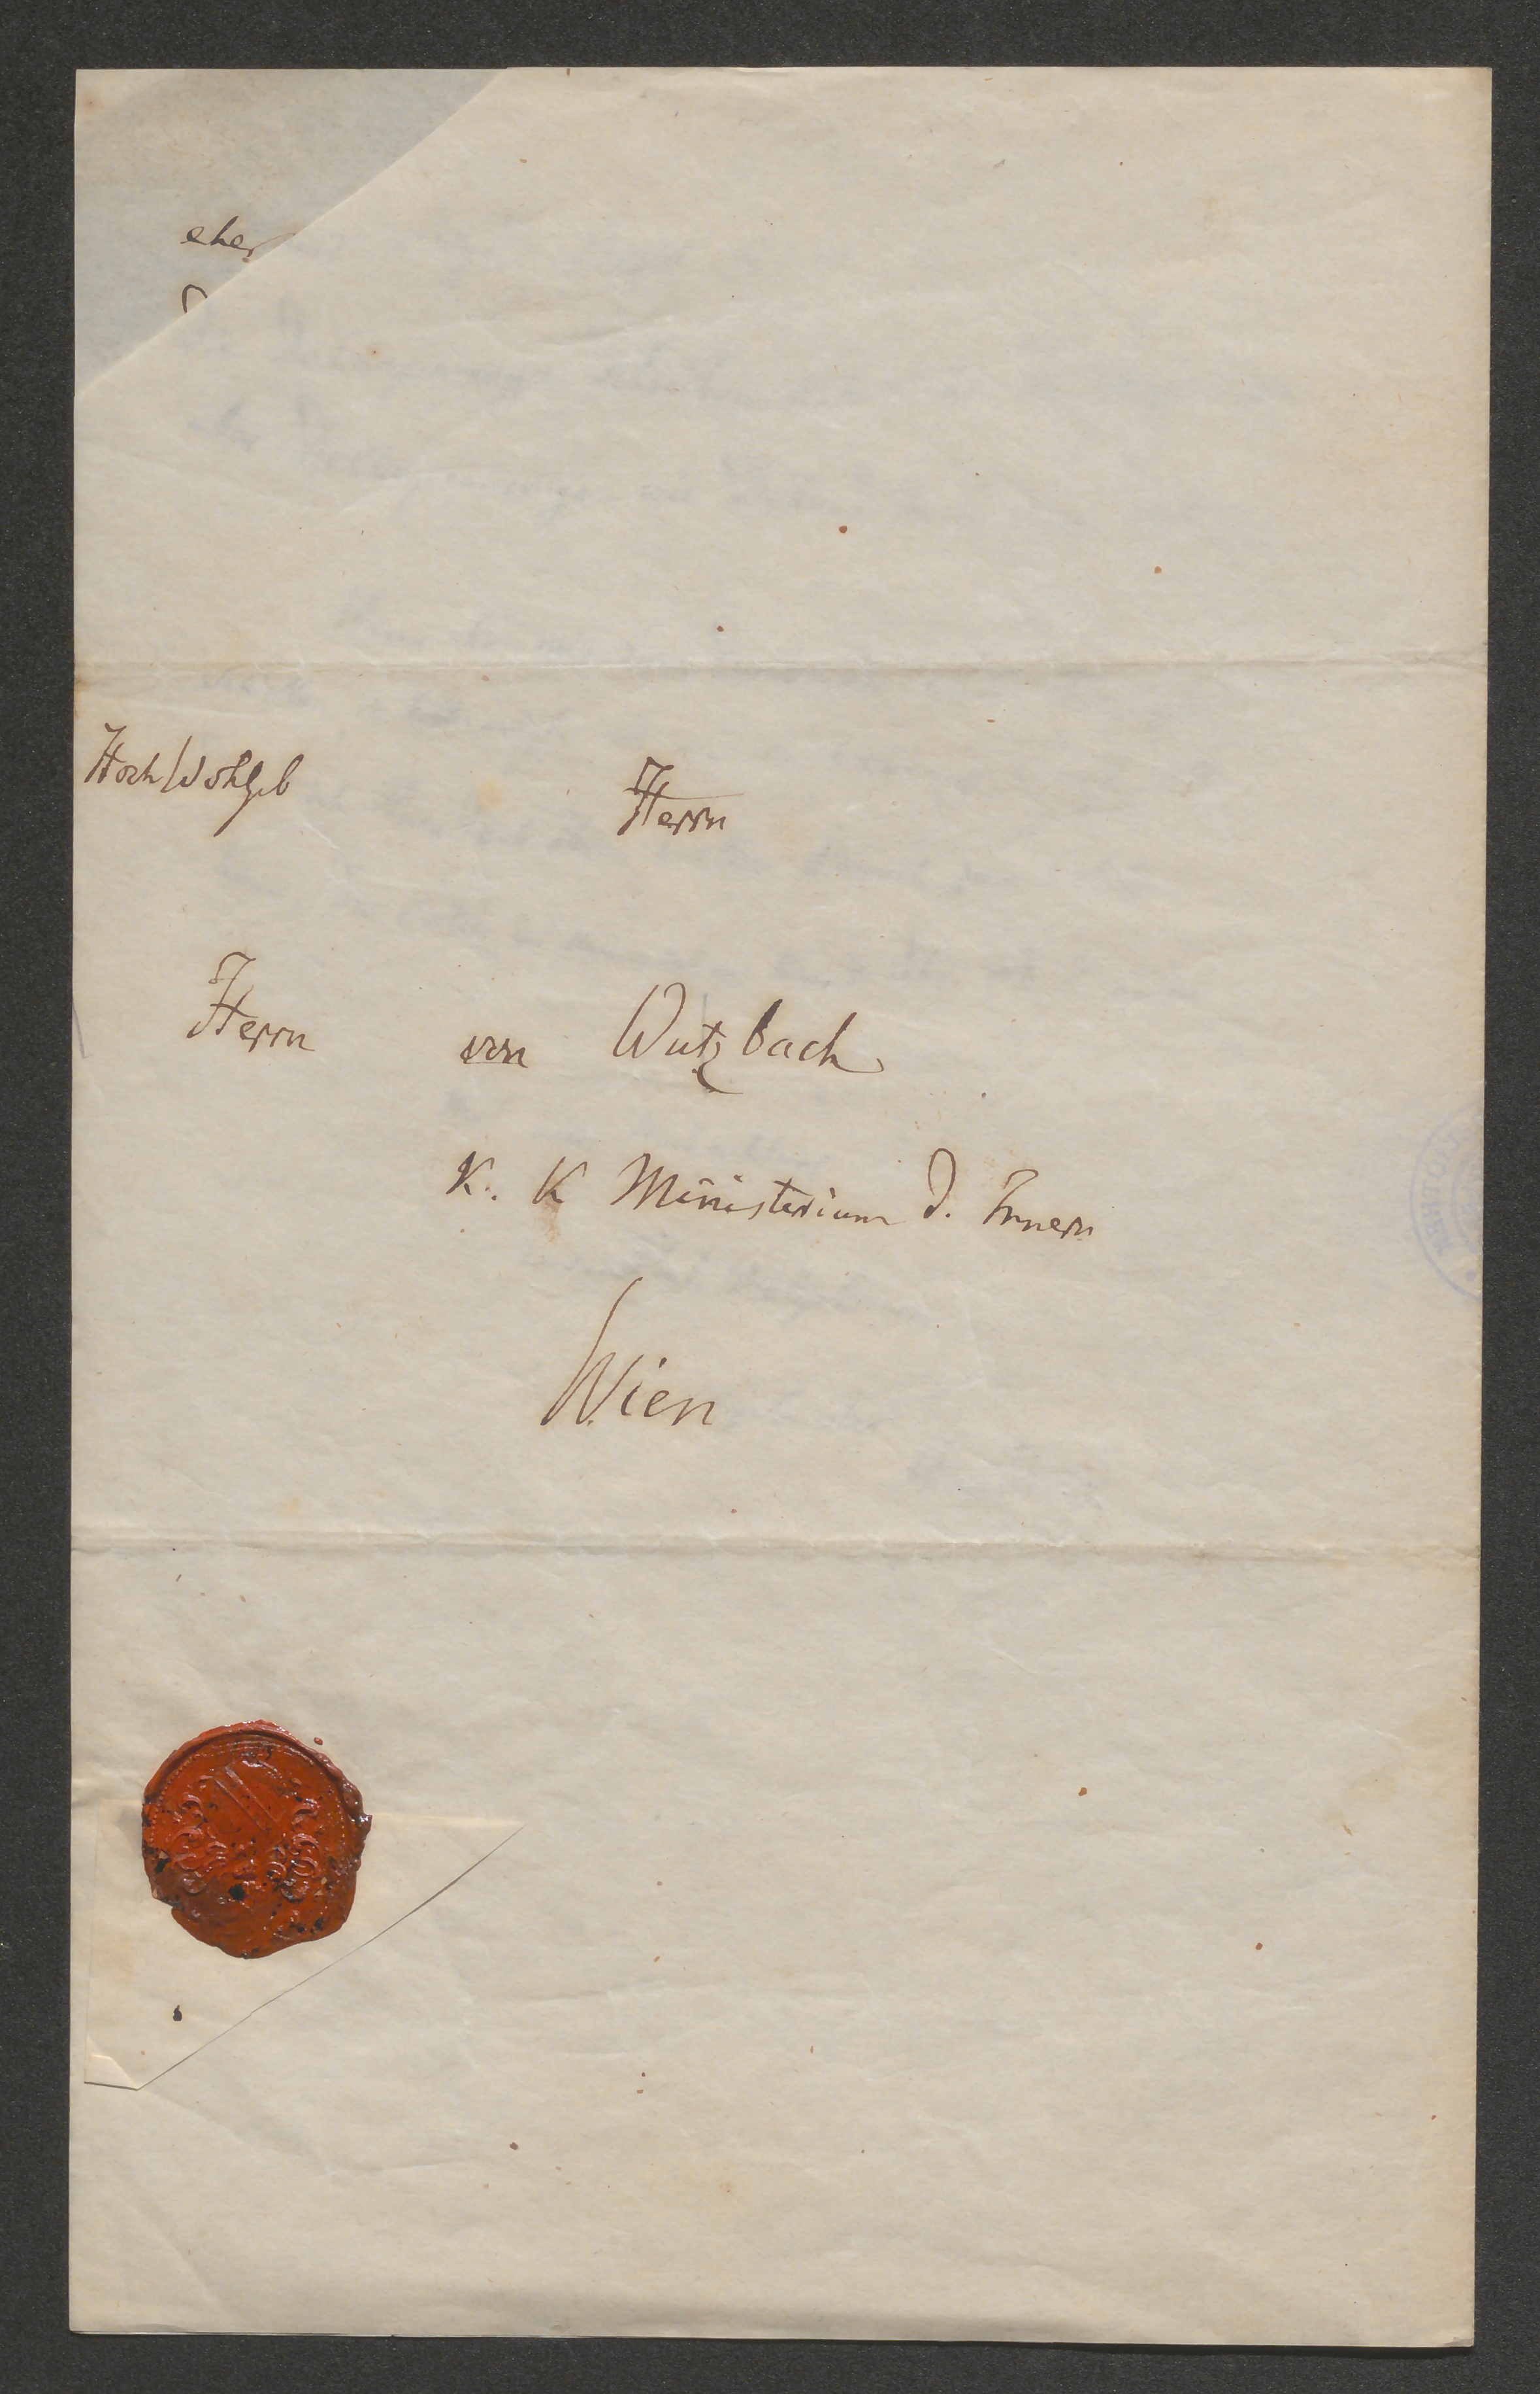 eher
HochWohlgeb
Herrn
Herrn von Wutzbach
K. K Ministerium d. Innern
Wien